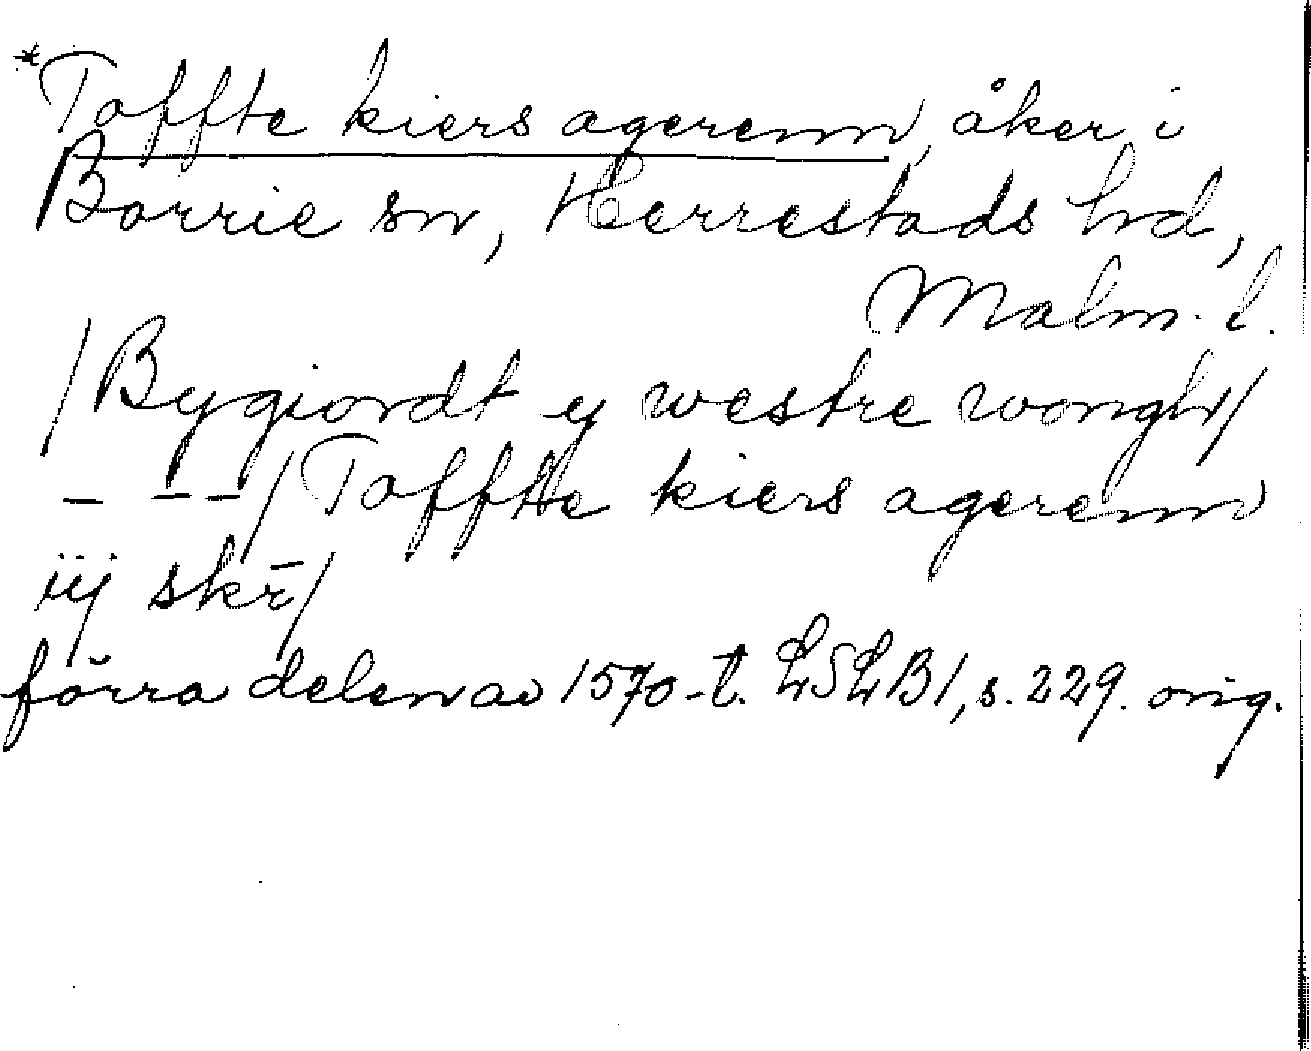 *Toffte kiers agerenn, åker i
Borrie sn, Herrestads hd,
Malm. l.
/Bygiordt y westre wongh/
– – –/Toffte kiers agerenn
iij skr̄/
förra delen av 1570-t. LSLB1, s. 229. orig.